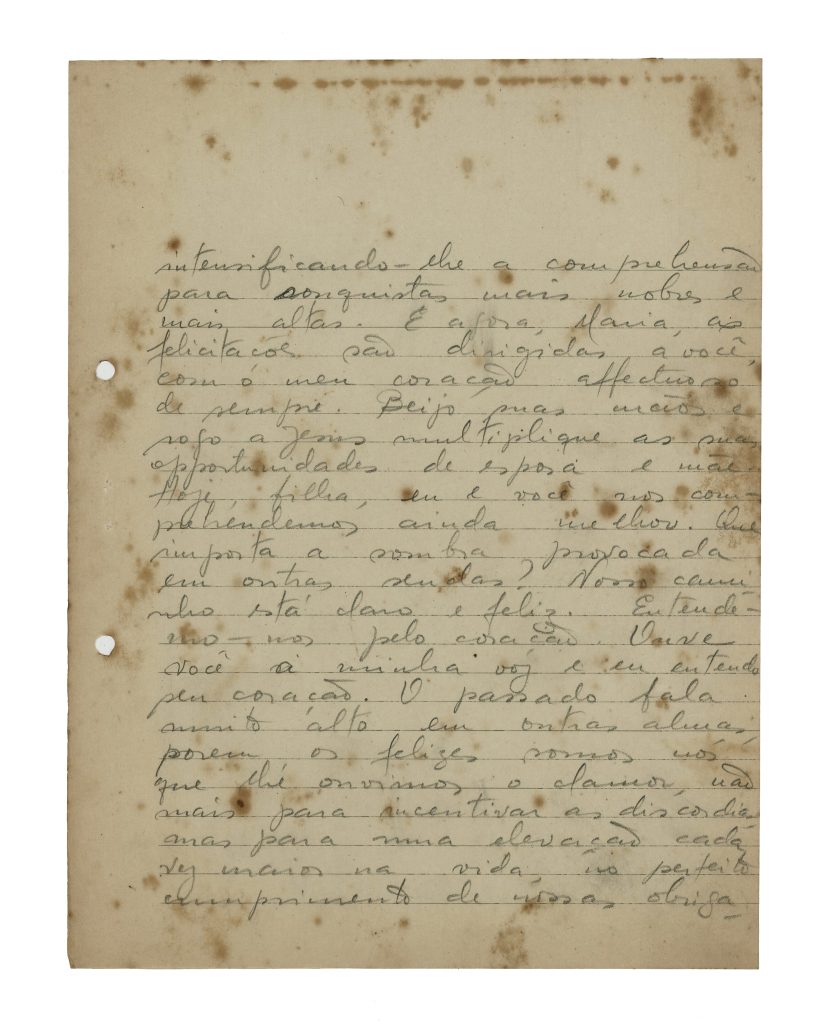 intensificando-lhe a comprehensão
para conquistas mais nobres e
mais altas. E agora, Maria, as
felicitações são dirigidas a você,
com o meu coração affectuoso
de sempre. Beijo suas mãos e
rogo a Jesus multiplique as suas
opportunidades de esposa e mãe.
Hoje, filha, eu e você nos com-
prehendemos ainda melhor. Que
importa a sombra provocada
em outras sendas? Nosso cami
nho está claro e feliz. Entende-
mo-nos pelo coração. Ouve
você a minha voz e eu entendo
seu coração. O passado fala
muito alto em outras almas,
porem os felizes somos nós
que lhe ouvimos o clamor, não
mais para incentivar as discordias,
mas para uma elevação cada
vez maior na vida, no perfeito
cumprimento de nossas obriga-